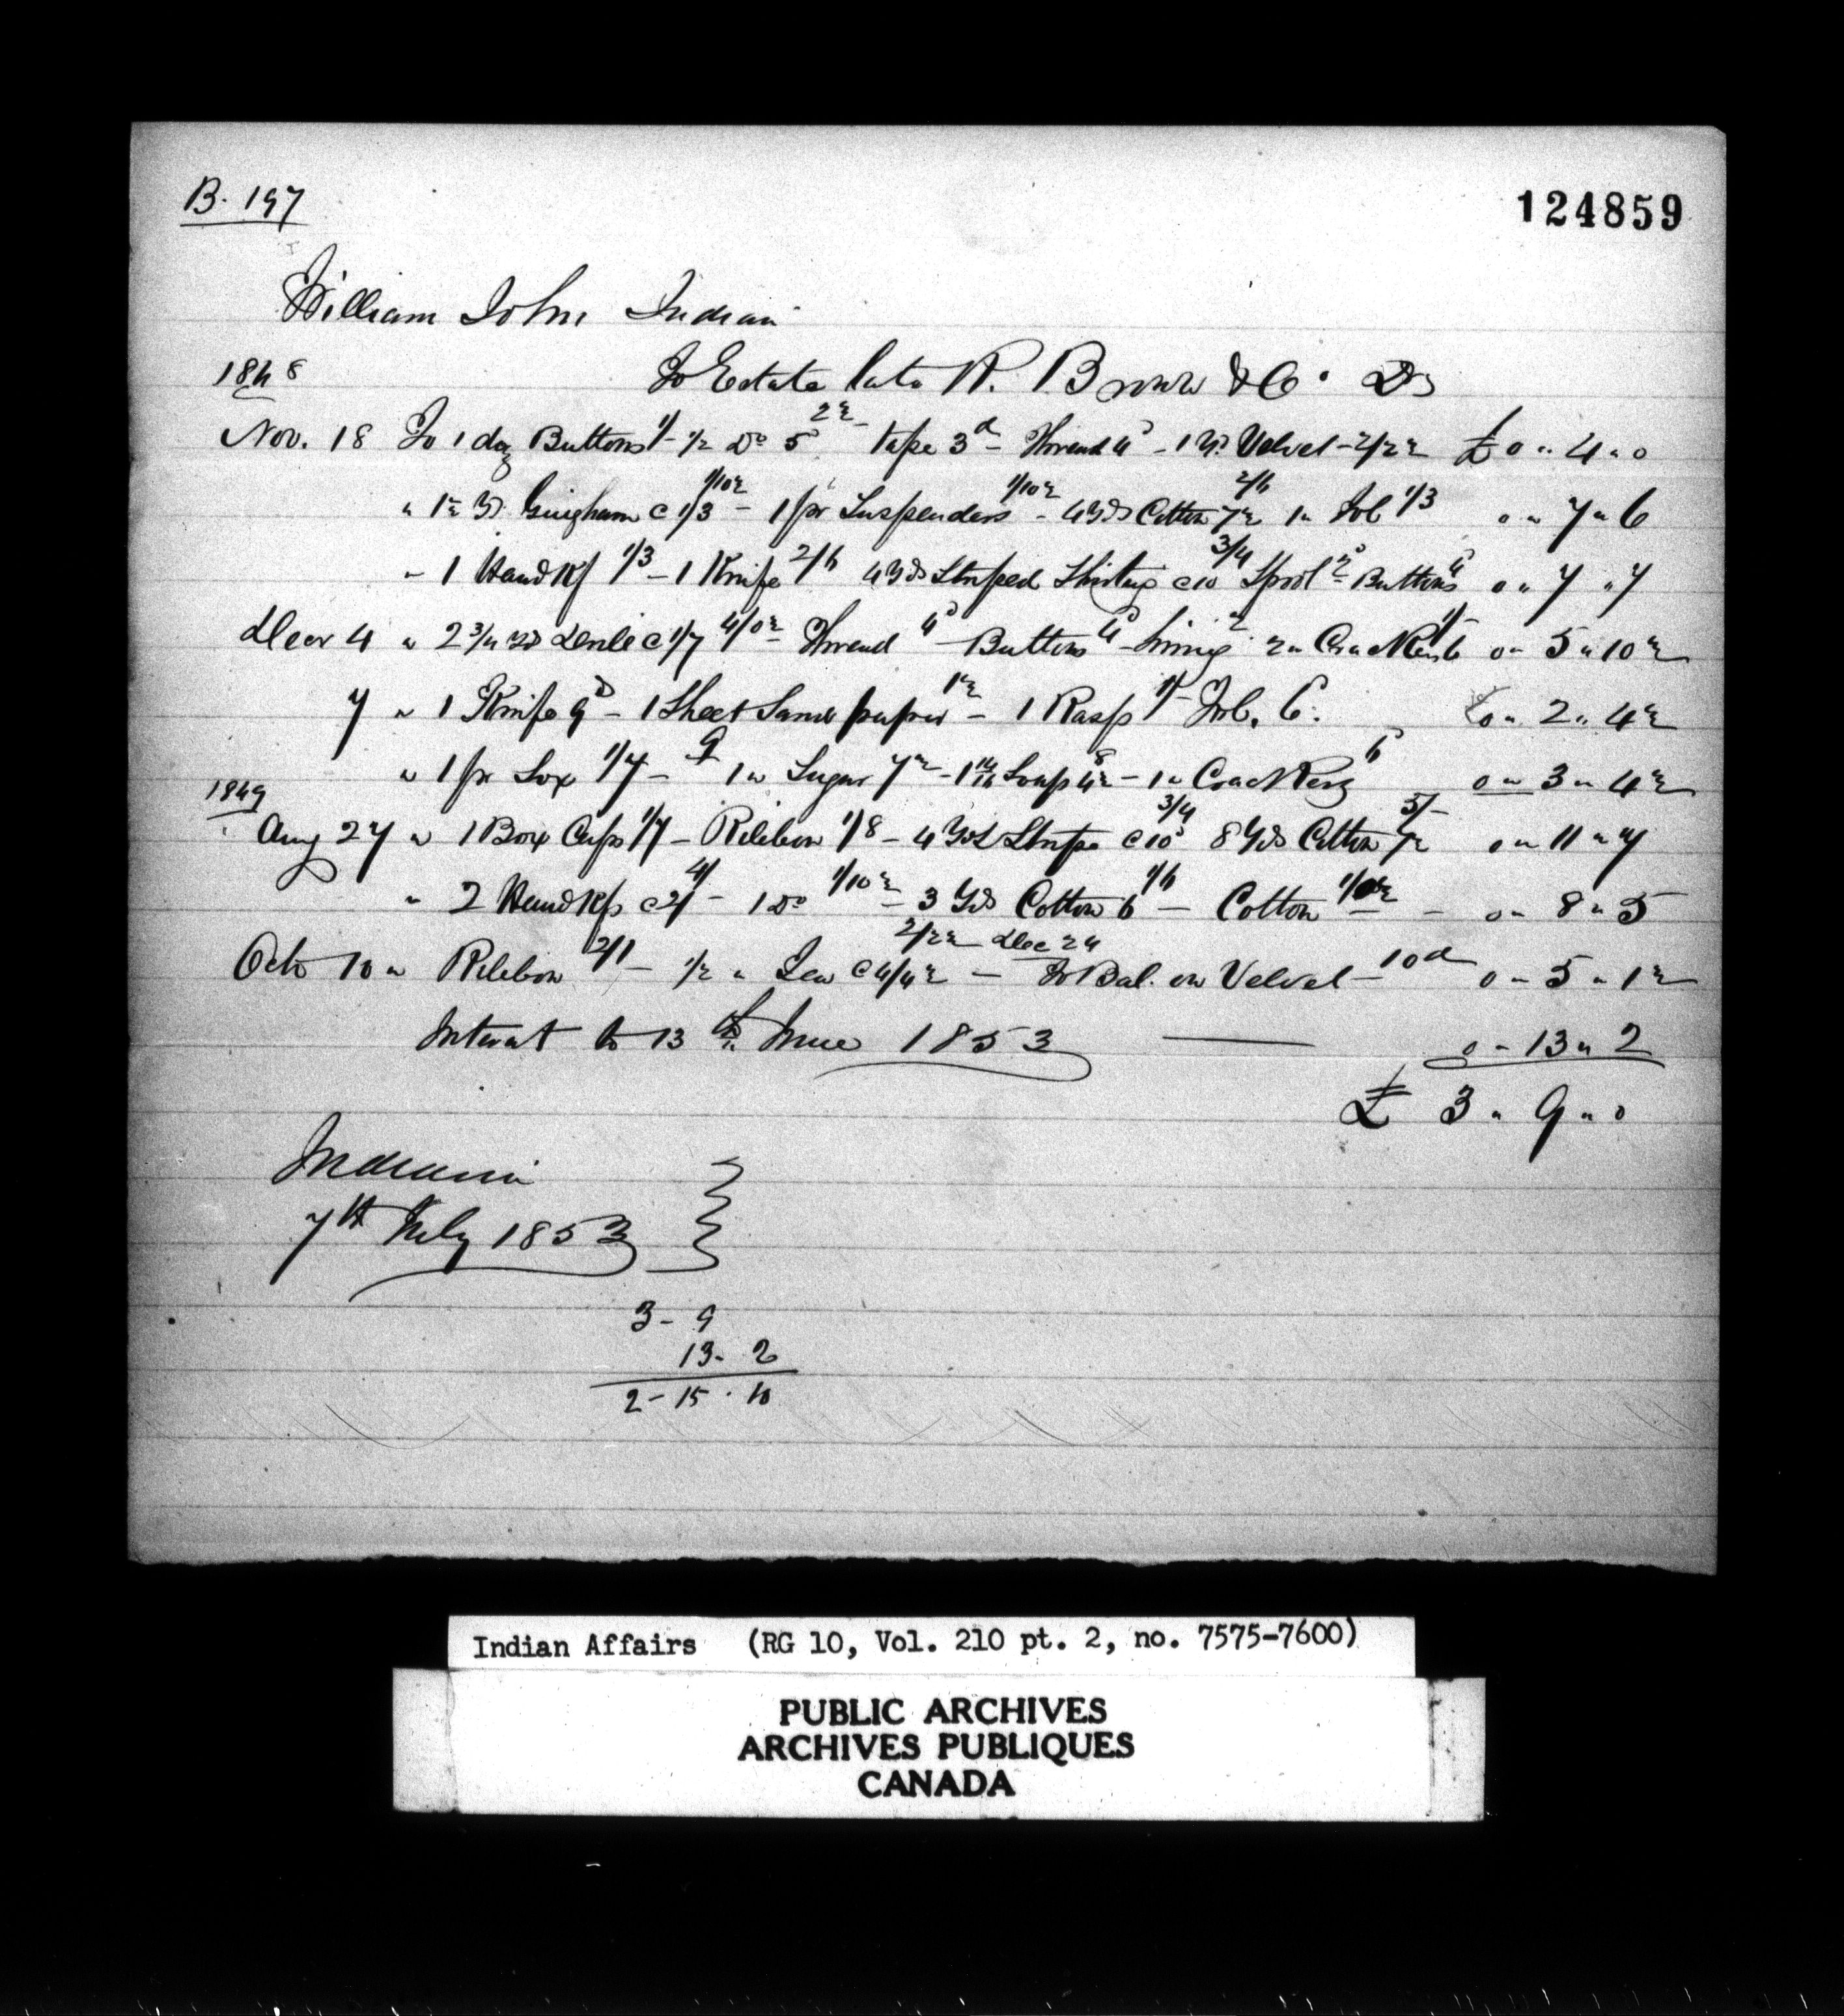 B. 197
124859
William John Indian
1848 To Estate late R. Brown & Co. Dr
Nov. 18 To 1 doz Buttons 1/- ½ Do 5d 2½ - Tape 3d - Thread 4d - 1 Yd Velvet - 2/2½ £ 0 " 4 " 0
" 1½ Yd Gingham c 1/3 1/10½ - 1 pr Suspenders 1/10½ - 4 Yds Cotton 7½ 2/6 1 " Tob 1/3 0 " 7 " 6
" 1 Handkf 1/3 - 1 Knife 2/6 4 Yds Striped Shirting c 10 3/4 Spool 2d Buttons 4d 0 " 7 " 7
Decr 4 " 2 3/4 Yds c 1/7 4/0½ - Thread 4d - Buttons 4d - 2 2 " Crackers 6 1/- 0 " 5 " 10½
7 " 1 Knife 9d - 1 Sheet Sand paper 1½ - 1 Rasp 1/- Tob. 6. 0 " 2 " 4½
" 1 pr Sox 1/7 - 9 1 " Sugar 7½ - Soap 4½ 8 - 1 " Crackers 6 0 " 3 " 4½
1849
Aug 27 " 1 Box Caps 1/7 - Ribbon 1/8 - 4 Yds Stripe c 10d 3/4 8 Yds Cotton 7½ 5/- 0 " 11 " 7
" 2 Handkfs c 2/ 4/ - 1 Do 1/10½ - 3 Yds Cotton 6 1/6 - Cotton - 0 " 8 " 5
Oct 10 " Ribbon 2/1 - ½ " Tea c 4/4½ 2/2½ - Dec 24 To Bal. on Velvet - 10d 0 " 5 " 1½
Interest to 13th June 1853 0 " 13 " 2
£ 3 " 9 " 0
Indiana
7th July 1853
3 - 9
13 - 2
2 - 15 . 10
Indian Affairs (RG 10, Vol. 210 pt. 2, no. 7575-7600)
PUBLIC ARCHIVES
ARCHIVES PUBLIQUES
CANADA